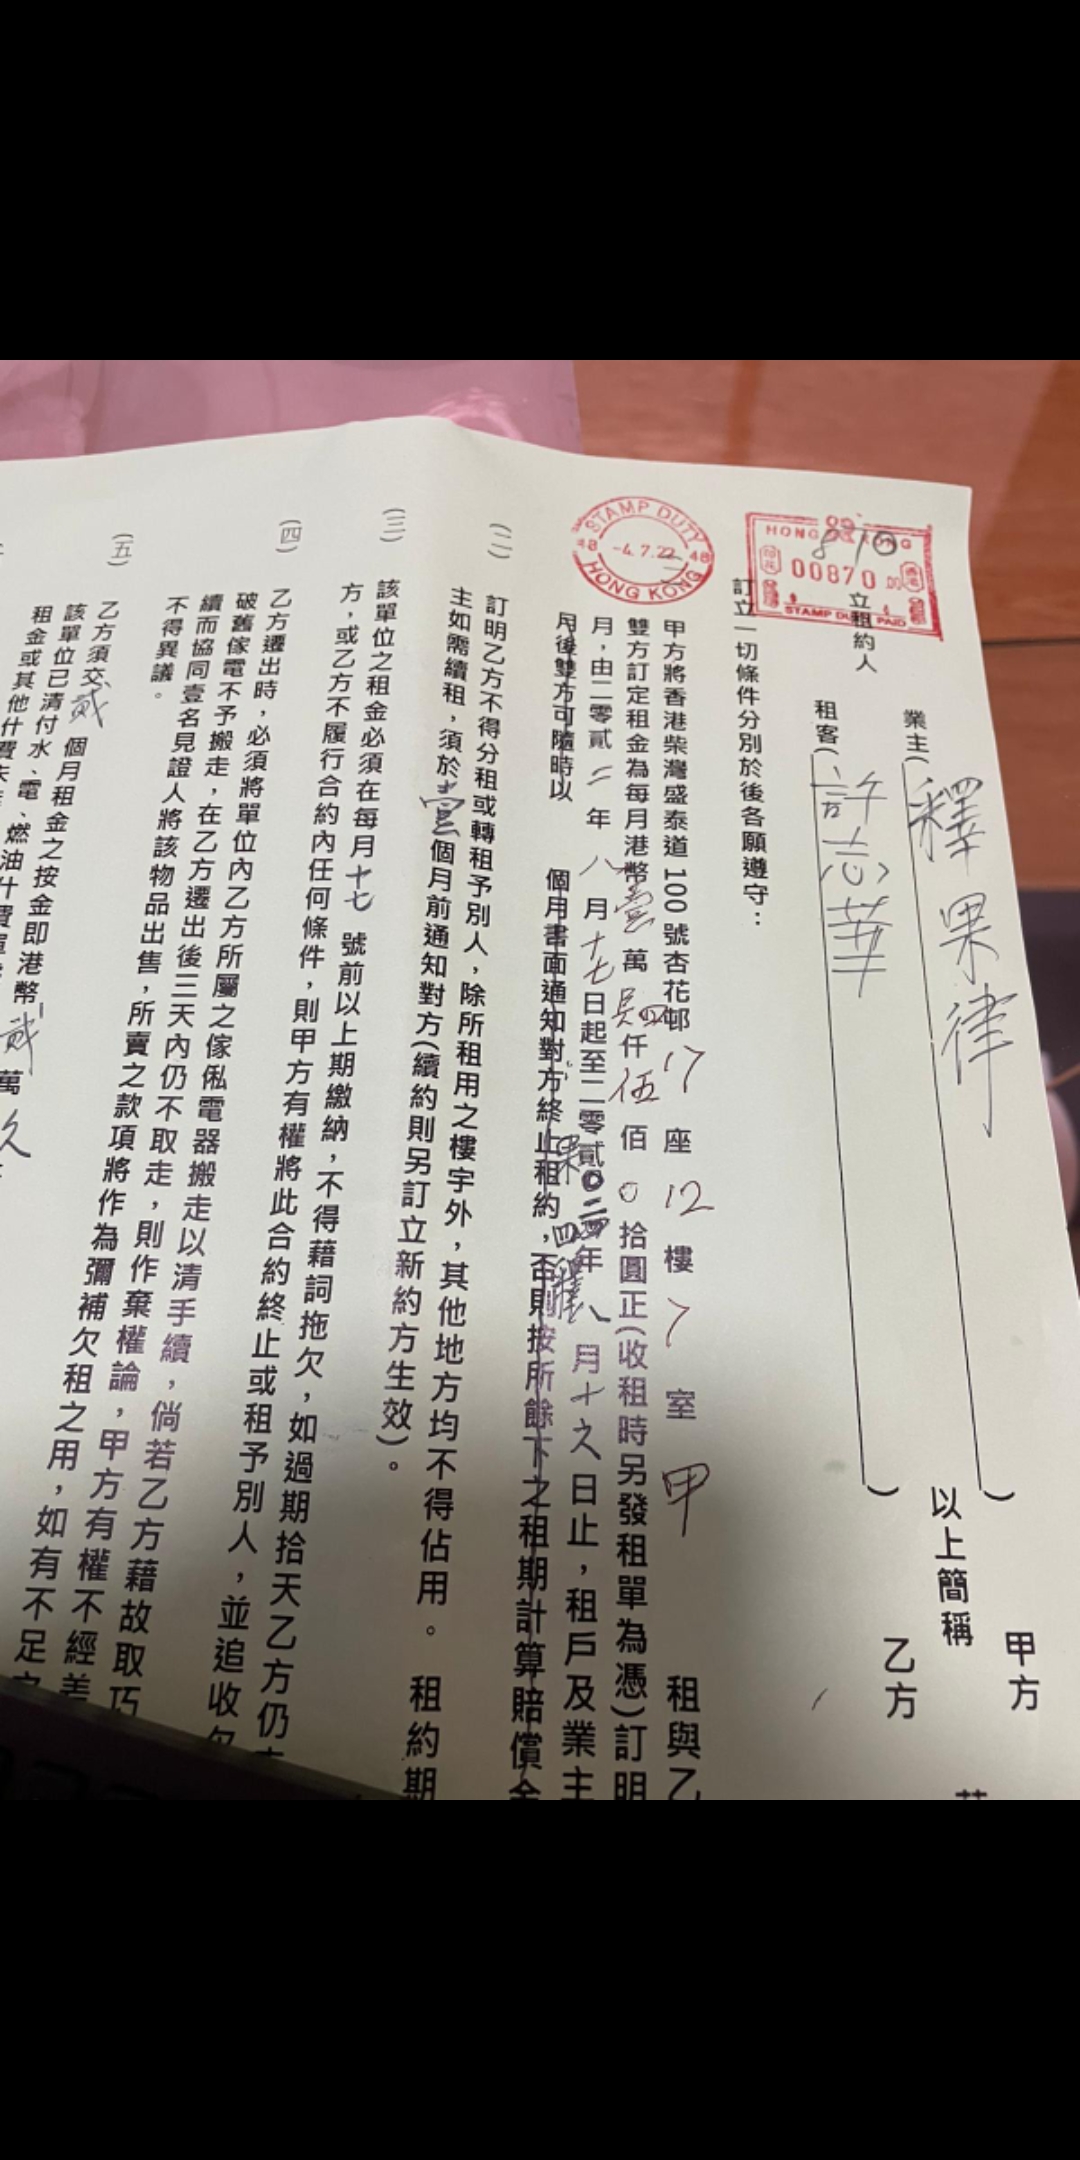 HONG KONG
870
00870
STAMP DUTY PAID
STAMP DUTY
48 -4.7.22 48
HONG KONG
甲方
業主(釋果律)
以上簡稱
立租約人
租客(許志華)
乙方
訂立一切條件分別於後各願遵守：
甲方將香港柴灣盛泰道 100 號杏花邨17座12樓7室甲 租與乙
雙方訂定租金為每月港幣壹萬四仟伍佰0拾圓正(收租時另發租單為憑)訂明
月，由二零貳二年八月十七日起至二零二四年八月十六日止，租戶及業主
月後雙方可隨時以 個月書面通知對方終止租約，否則按所餘下之租期計算賠償金
(二) 訂明乙方不得分租或轉租予別人，除所租用之樓宇外，其他地方均不得佔用。 租約期
主如需續租，須於壹個月前通知對方(續約則另訂立新約方生效)。
(三) 該單位之租金必須在每月十七號前以上期繳納，不得藉詞拖欠，如過期拾天乙方仍
方，或乙方不履行合約內任何條件，則甲方有權將此合約終止或租予別人，並追收欠
(四) 乙方遷出時，必須將單位內乙方所屬之傢俬電器搬走以清手續，倘若乙方藉故取巧
破舊傢電不予搬走，在乙方遷出後三天內仍不取走，則作棄權論，甲方有權不經
續而協同壹名見證人將該物品出售，所賣之款項將作為彌補欠租之用，如有不足
不得異議。
(五) 乙方須交貳個月租金之按金即港幣貳萬
該單位已清付水、電、燃油什費
租金或其他什費